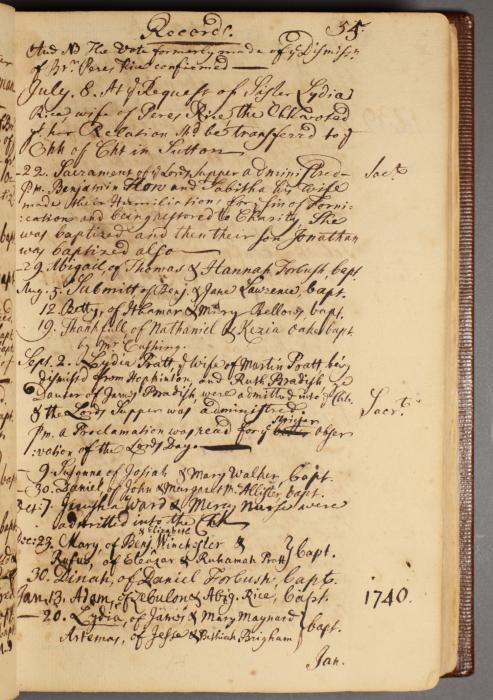 Records. 55.
And NB The Vote formerly made of yͤ Dismission
of Brͬ Peres Rice confirmed
July. 8. At yͤ Request of Sister Lydia
Rice, wife of Peres Rice, the Chh voted
yͭ her Relation shͩ be transferred to yͤ
Chh of Cht in Sutton
-22. Sacrament of yͤ Lords Supper administred- Sacͭ
pm. Benjamin How and Tabitha his wife
made their Humiliations for yͤ sin of Forni-
:cation and being restored to Charity, She
was baptized and then their son Jonathan
was baptized also
-29. Abigail, of Thomas & Hannah Forbush bapt.
Aug. 5. Submitt of Benj. & Jane Lawrence bapt.
12. Betty, of Ithamar & Mary Bellows, bapt.
19. Thankfull of Nathaniel & Kezia Oake bapt
by Mr Cushing.
Sept. 2. Lydia Pratt, yͤ wife of Martin Pratt being
dismiss'd from Hopkinton, and Ruth Bradish yͤ
Dauter of James Bradish, were admitted into yͤ Chh.
& the Lords Supper was administred Sacrͭ.
pm. a Proclamation was read for yͤ stricter obser
:vation of the Lords Day.
- 9. Susanna of Josiah & Mary Walker, bapt.
-30. Daniel of John & Margaret McAllister, bapt.
Oct. 7. Jerusha Ward & Mercy Nurse were
admitted into the Chh
Dec. 23. Mary, of Benj. & Elizabeth Winchester &
Rufus, of Eleazar & Ruhamah Pratt } bapt.
30. Dinah, of Daniel Forbush, bapt.
Jan. 13. Adam, of Zebulon & Abig. Rice, bapt. 1740.
- 20. Lydia, of James & Mary Maynard
Artemas, of Jesse & Bethiah Brigham } bapt.
Jan.